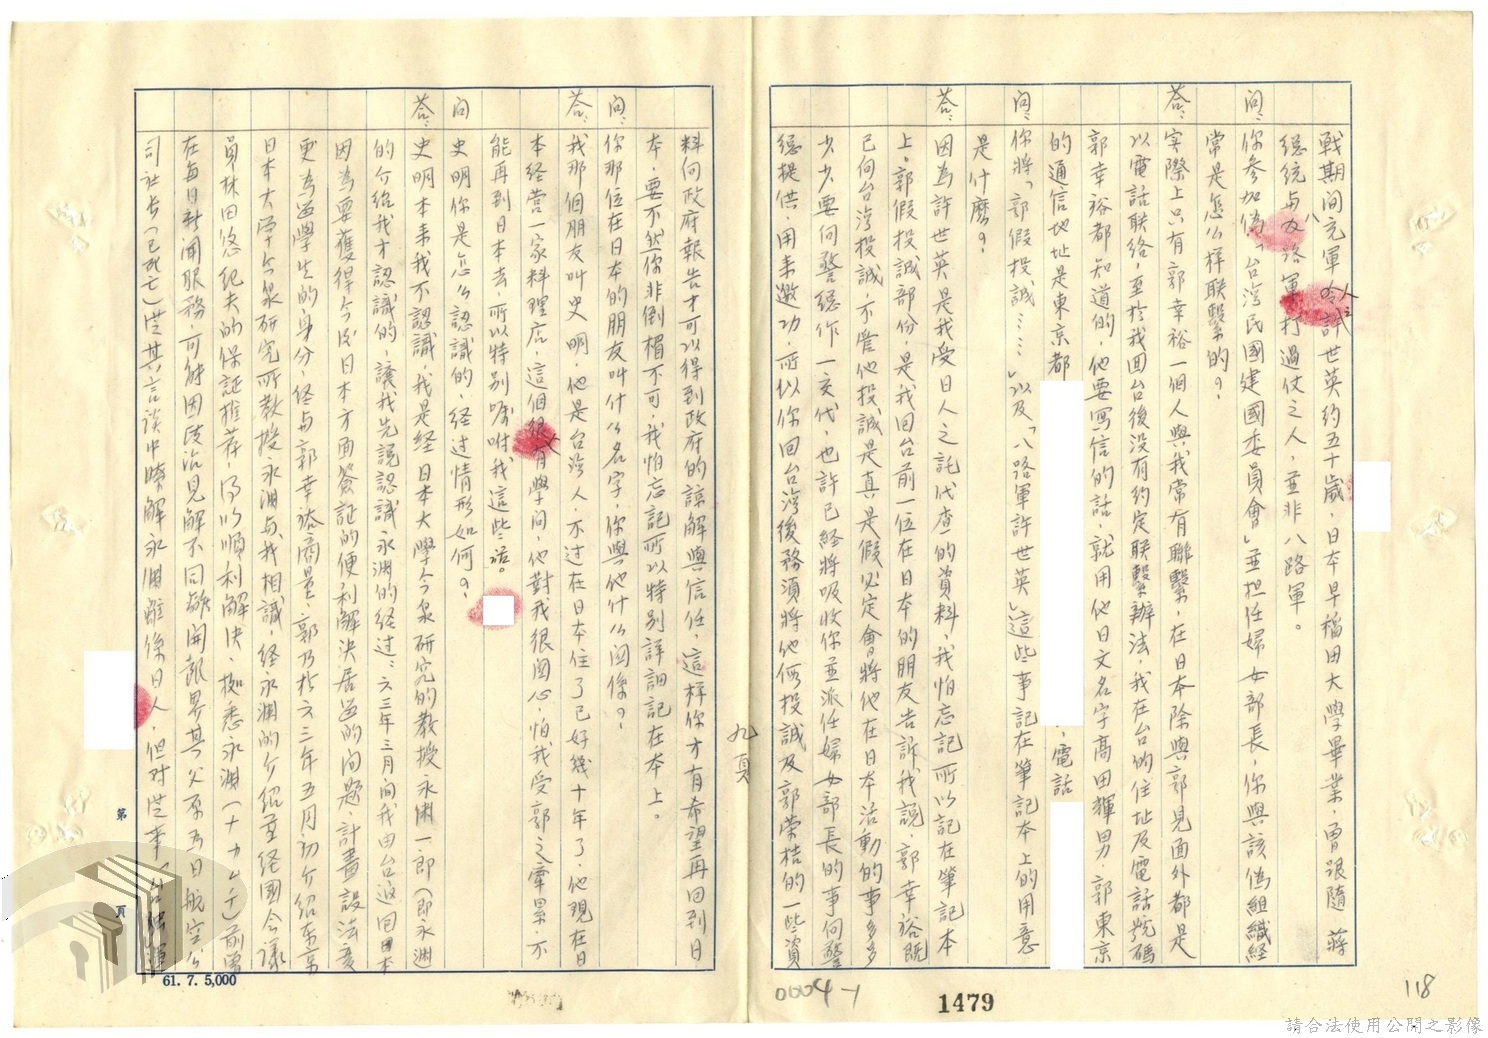 戰期間充軍令許世英約五十歲，日本早稻田大學畢業，曾跟隨 蔣
人之
總統与八路軍打過仗之人，並非八路軍。
問：你參加偽「台灣民國建國委員會」並担任婦女部長，你與該偽組織經
常是怎么样联繫的？
答：实際上只有郭幸裕一個人與我常有聯繫，在日本除與郭見面外都是
以電話联络，至於我回台後没有约定联繫辦法，我在台的住址及電話號碼
郭幸裕都知道的，他要寫信的話，就用他日文名字高田輝男，郭東京
的通信地址是東京都
，電話
問：你將「郭假投誠……」以及「八路軍許世英」這些事記在筆記本上的用意
是什麼？
答：因為許世英是我受日人之託代查的資料，我怕忘記所以記在筆記本
上，郭假投誠部份，是我回台前一位在日本的朋友告訴我說，郭幸裕既
已向台灣投誠，不管他投誠是真是假必定會將他在日本活動的事多多
少少要向警總作一交代，也許已経將吸收你並派任婦女部長的事向警
總提供，用来邀功，所以你回台灣後務須將他何投誠及郭榮桔的一些資
九頁
料向政府報告才可以得到政府的諒解與信任，這样你才有希望再回到日
本，要不然你非倒楣不可，我怕忘記所以特别詳細記在本上。
問：你那位在日本的朋友叫什么名字，你與他什么関係？
答：我那個朋友叫史明，他是台灣人，不过在日本住了已好幾十年了，他現在日
本経营一家料理店，這個人很有學问，他對我很関心，怕我受郭之牽累，不
能再到日本去，所以特别嘱咐我這些話。
问：史明你是怎么認識的，経过情形如何？
答：史明本来我不認識，我是经日本大學今泉研究的教授永淵一郎（即永淵
的介绍我才認識的，讓我先説認識永渊的経过：六三年三月间我由台返回日本
因為要獲得今后日本方面簽証的便利解決居留的问題，計畫設法变
更為留學生的身分，経与郭幸裕商量，郭乃於六三年五月初介绍东京
日本大学今泉研究所教授永渊与我相識，経永渊的介绍並経國会議
員林田悠紀夫的保証推荐，得以順利解决，据悉永渊（十九 ）前曾
在每日新聞服務，可能因政治見解不同離開報界其父原為日航空公
司社长（已死亡）從其言談中瞭解永渊雖係日人，但对從事「台独運
第
頁
61. 7. 5,000
0004-1
1479
118
請合法使用公開之影像